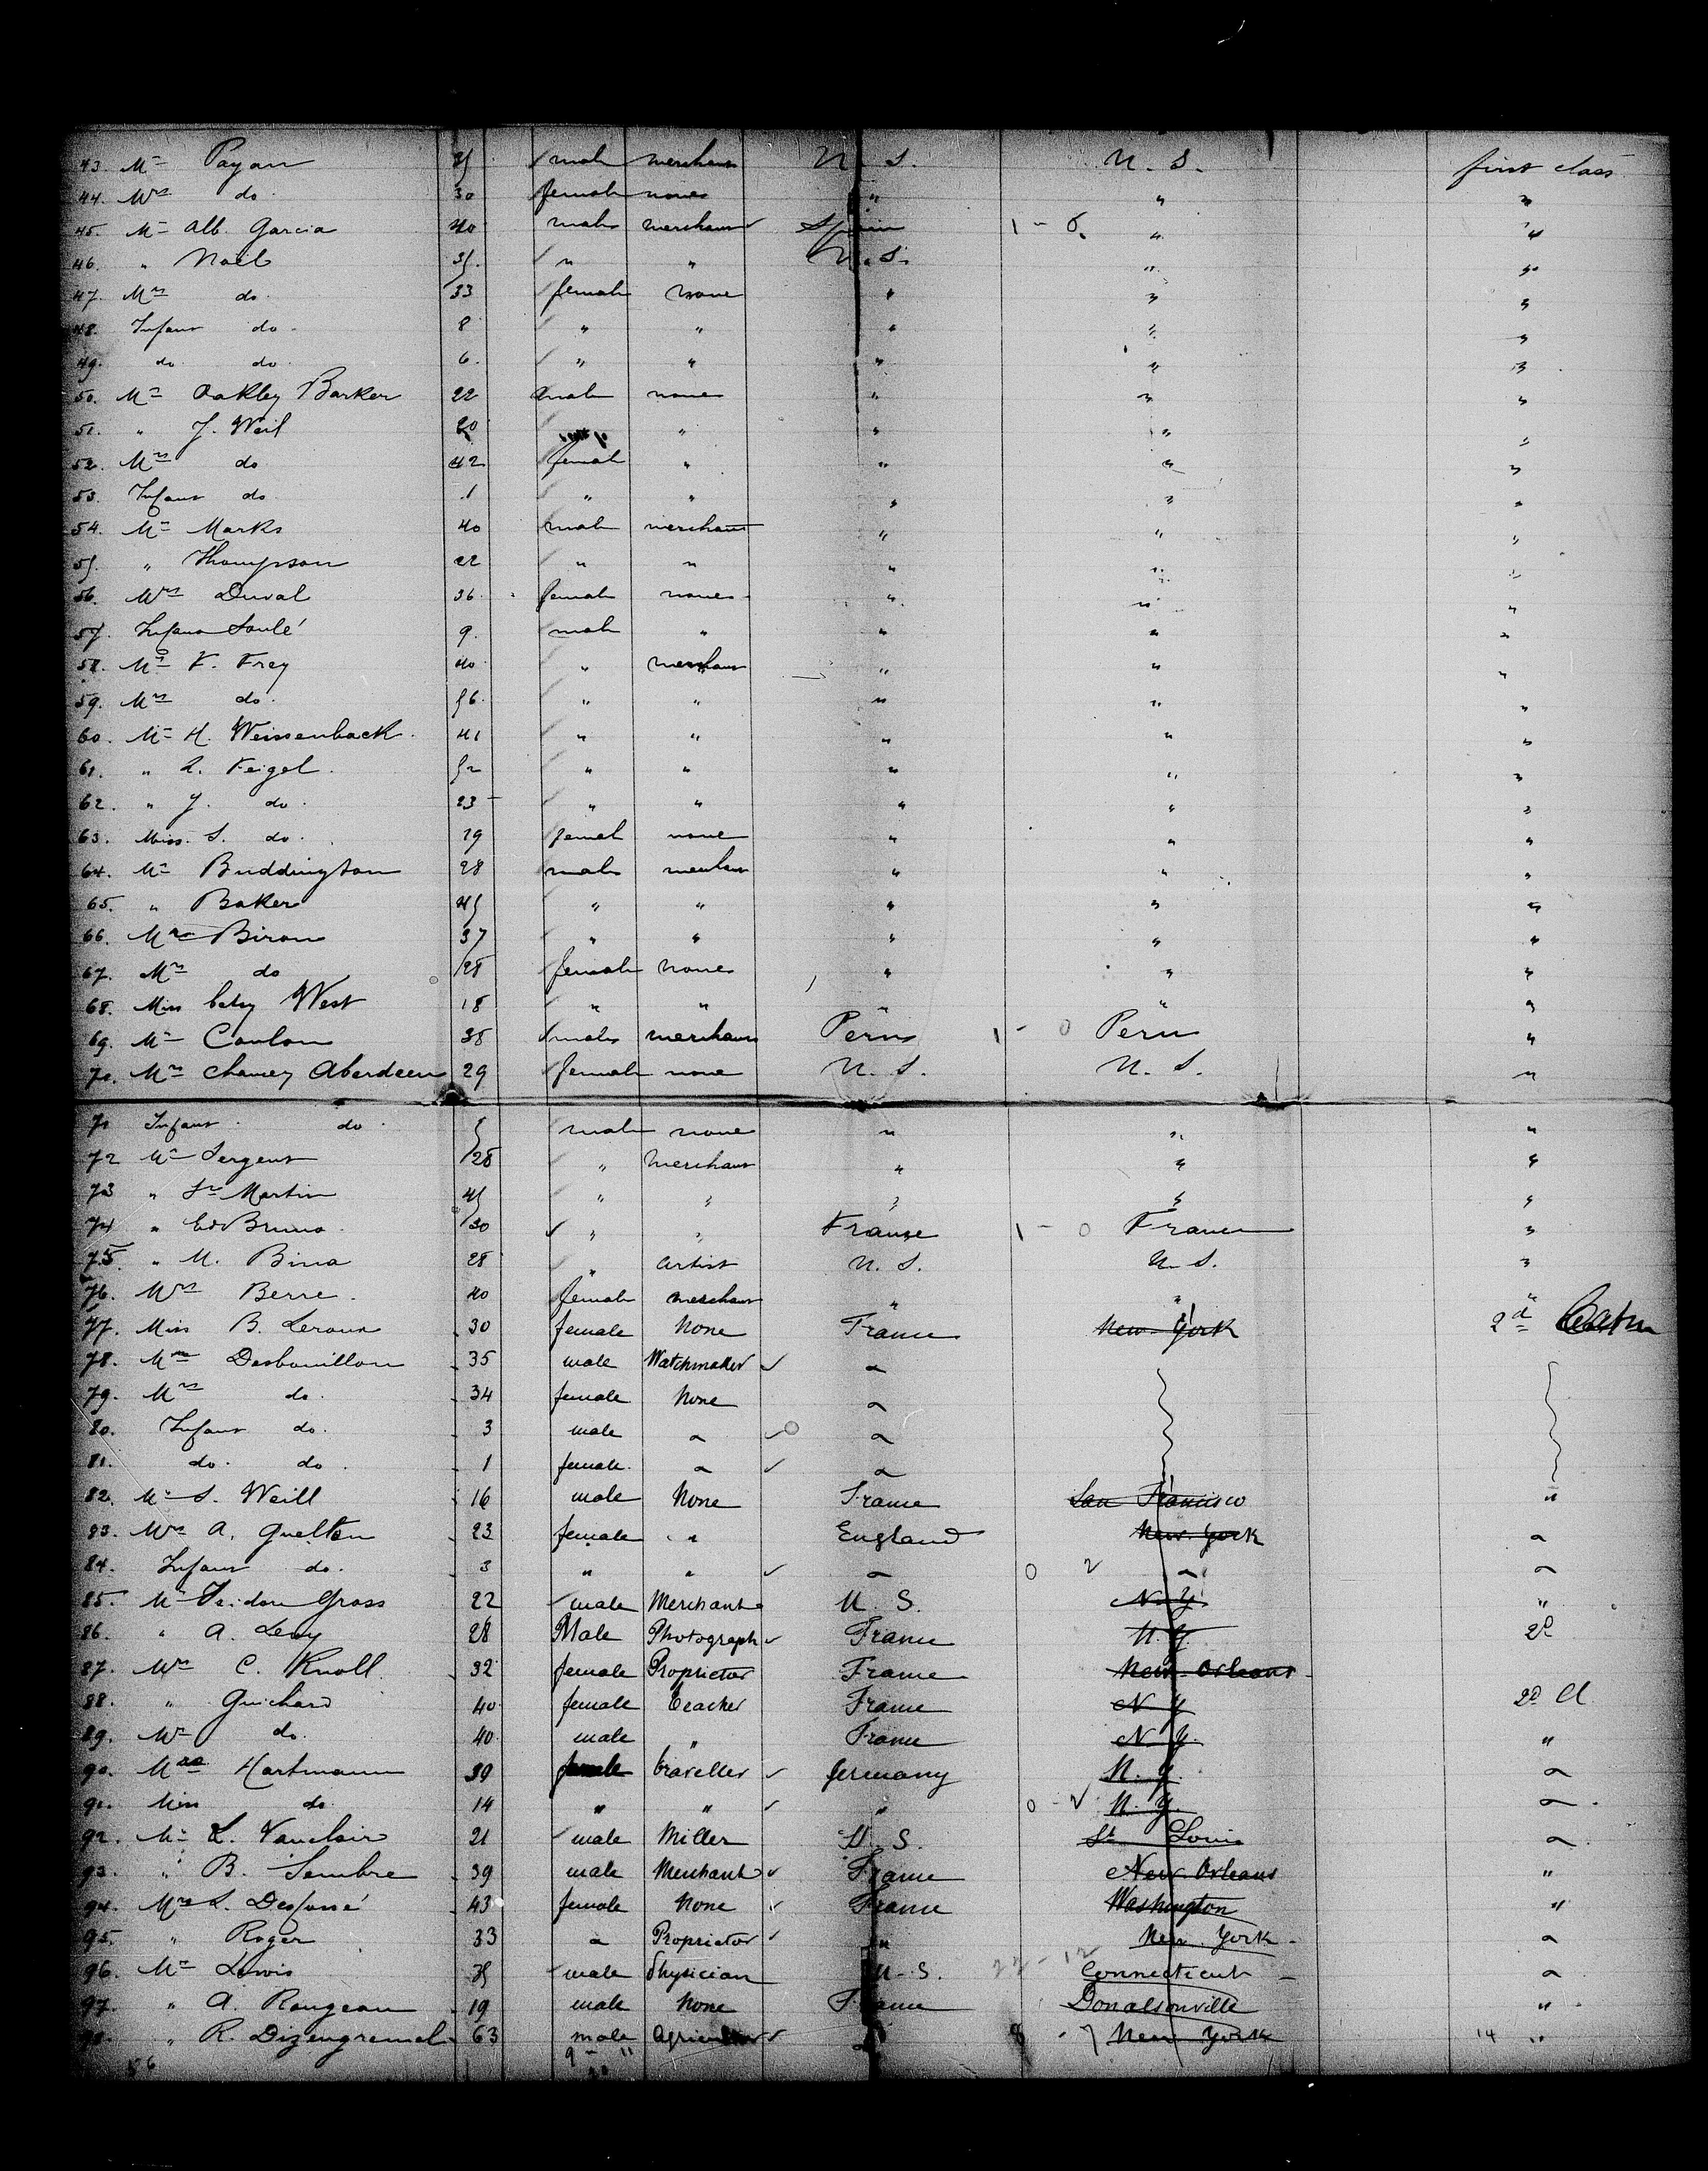 43. Mr Payan 45 male merchant U. S. U. S. first class
44. Mrs do 30 female none " " "
45. Mr Alb. Garcia 40 male merchant Spain 1 - 0 " "
46. " Noël 35. " " U. S. " "
47. Mrs do. 33 female none " " "
48. Infant do. 8 " " " " "
49. do do. 6. " " " " "
50. Mr Oakley Barker 22 male none " " "
51. " J. Weil " " " "
52. Mrs do 42 female " " " "
53. Infant do. 1 " " " " "
54. Mr Marks 40 male merchant " " "
55. " Thompson 22 " " " " "
56. Mrs Duval 36. female none " " "
57. Infant Soulé 9. male " " " "
58. Mr F. Frey 40 " merchant " " "
59. Mrs do. 56. " " " " "
60. Mr H. Weissenback. 41 " " " " "
61. " L. Feigel. 52 " " " " "
62. " J. do. 23 " " " " "
63. Miss. S. do. 19 female none " " "
64. Mr Buddington 28 male merchant " " "
65. " Baker 45 " " " " "
66. Mr Biron 37 " " " " "
67. Mrs do 28 female none " " "
68. Miss Betsy West 18 " " " " "
69. Mr Coulon 38 male merchant Peru 1 - 0 Peru "
70. Mrs Chancey Aberdeen 29 female none U. S. U. S. "
71 Infant do. 5 male none " " "
72 Mr Sergent 28 " merchant " " "
73 " St Martin 45 " " " " "
74 " Ed Bruno. 30 " " France 1 - 0 France "
75. " M. Bina 28 " artist U. S. U. S. "
76. Mrs Berre. 40 female merchant " " "
77. Miss B. Leroux 30 female None France New York 2d Cabin
78. Mr Desbouillon 35 male Watchmaker "
79. Mrs do. 34 female None "
80. Infant do. 3 male " "
81. do. do. 1 female. " "
82. Mr S. Weill 16 male None France San Francisco "
83. Mrs A. Guelton 23 female " England New York "
84. Infant do. 3 " " " 0 2 " "
85. Mr Gross 22 male Merchant U. S. N. Y. "
86. " A. Levy 28 Male Photograph France N. Y. 2d
87. Mrs C. Knoll. 32 female Proprietor France New Orleans
88. " Guichard 40 female teacher France N. Y. 2d Cl
89. Mr do. 40 male " France N. Y. "
90. Hartmann 39 traveller Germany N. Y. "
91. Miss do. 14 " " " 0 - 2 N. Y. "
92. Mr L. Vauclair 21 male Miller U. S. St Louis "
93. " B. Sembre 39 male Merchant France New Orleans "
94. Mrs L. Desfossé 43 female None France Washington "
95. " Roger 33 " Proprietor " New York "
96. Mr Lewis 35 male Physician U. S. 22 - 12 Connecticut "
97. " A. Rougeau 19 male None France Donalsonville "
98. " R. Dizengremel 63 male 8 - 7 New York 14 "
56 9 - "